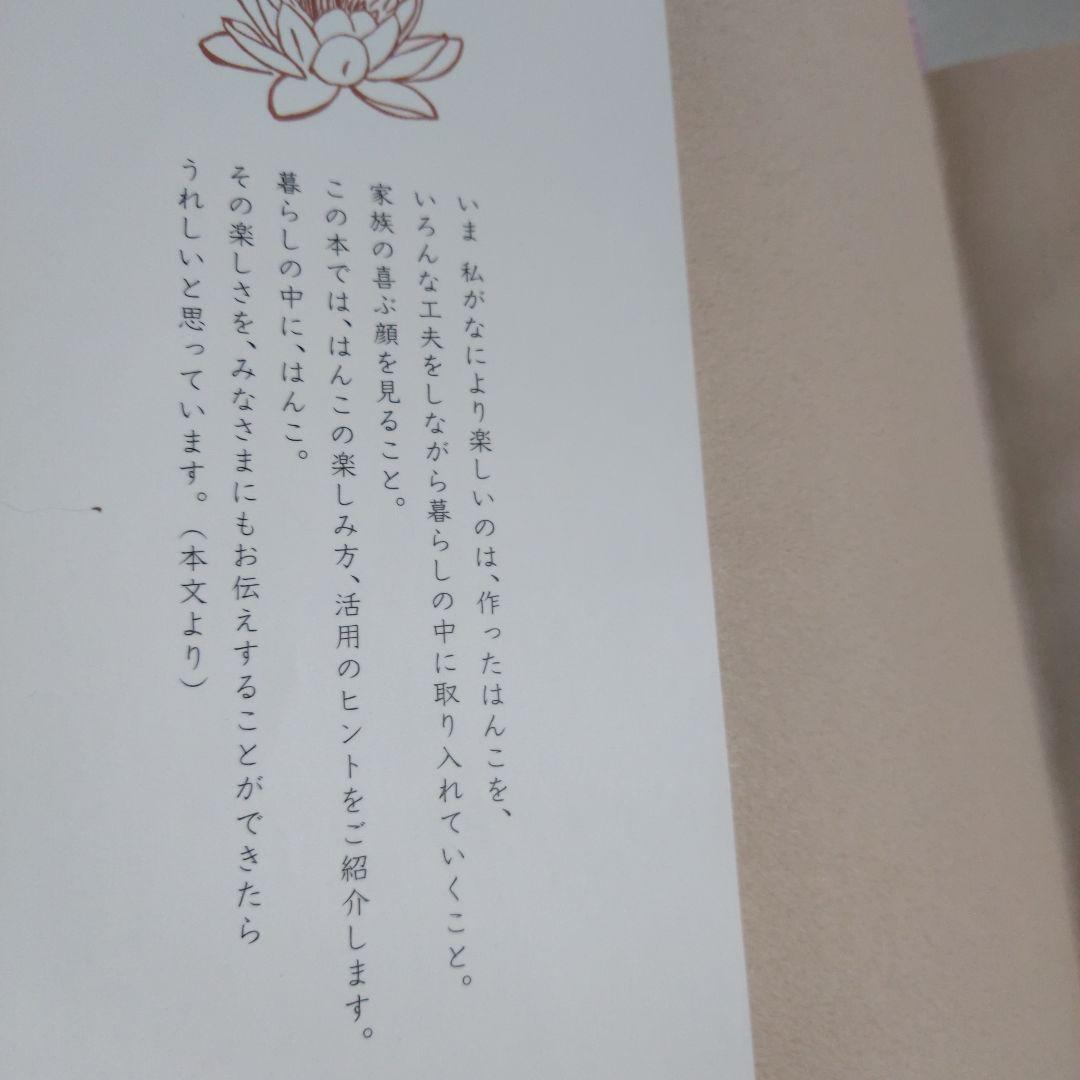 いま 私がなにより楽しいのは、作ったはんこを、
いろんな工夫をしながら暮らしの中に取り入れていくこと。
家族の喜ぶ顔を見ること。
この本では、はんこの楽しみ方、活用のヒントをご紹介します。
暮らしの中に、はんこ。
その楽しさを、みなさまにもお伝えすることができたら
うれしいと思っています。（本文より）